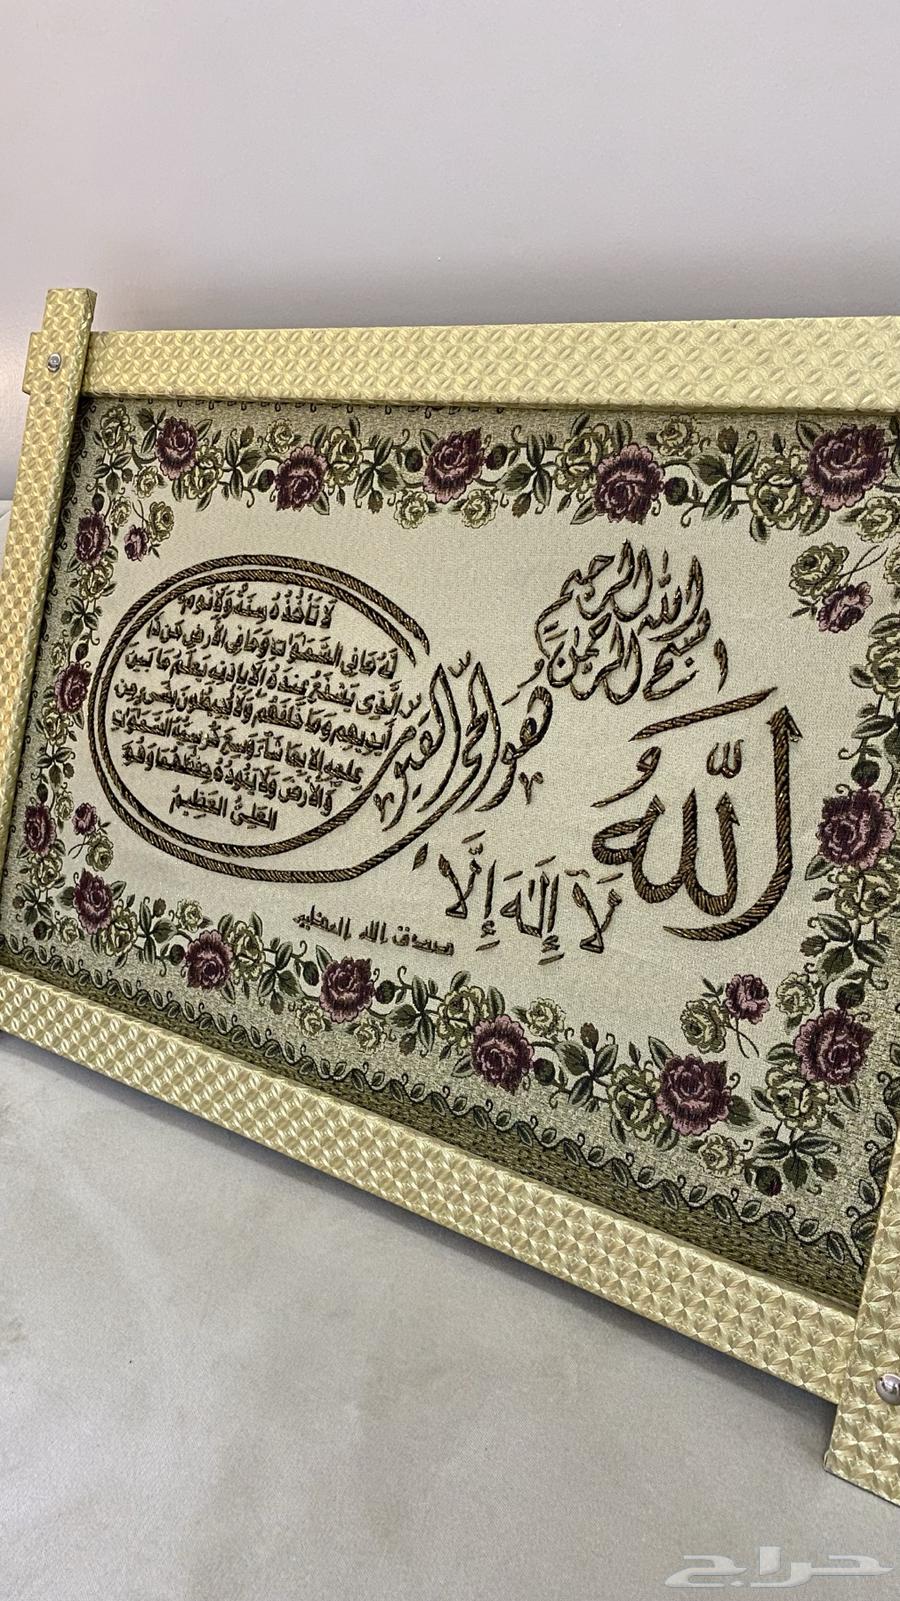 بسم الله الرحمن الرحيم
الله
لَا إِلَٰهَ إِلَّا
هُوَ الْحَيُّ الْقَيُّومُ
لَا تَأْخُذُهُ سِنَةٌ وَلَا نَوْمٌ
لَهُ مَا فِي السَّمَوَاتِ وَمَا فِي الْأَرْضِ مَنْ ذَا
الَّذِي يَشْفَعُ عِنْدَهُ إِلَّا بِإِذْنِهِ يَعْلَمُ مَا بَيْنَ
أَيْدِيهِمْ وَمَا خَلْفَهُمْ وَلَا يُحِيطُونَ بِشَيْءٍ مِنْ
عِلْمِهِ إِلَّا بِمَا شَاءَ وَسِعَ كُرْسِيُّهُ السَّمَوَاتِ
وَالْأَرْضَ وَلَا يَئُودُهُ حِفْظُهُمَا وَهُوَ
الْعَلِيُّ الْعَظِيمُ
صدق الله العظيم
حراج